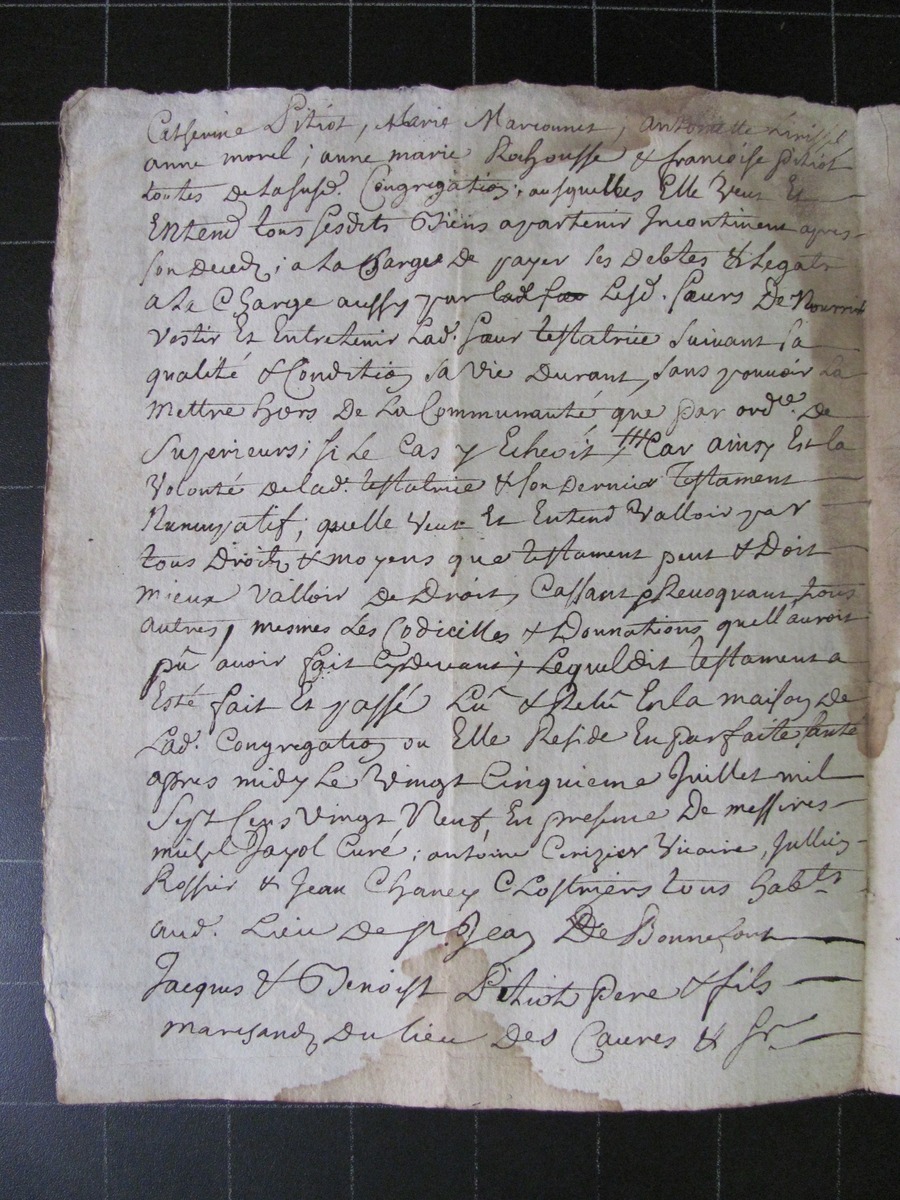 Catherine Pitiot, Marie Marcounet; antoinette
anne morel; anne marie Rahousse & francoise Pitiot
toutes De la susd. Congregation; ausquelles Elle Veut Et
Entend tous sesdits Biens apartenir Incontinent apres
son Decedz; a La Charge De payer les Debtes & Legats
a La Charge aussy par Lesd. Sœurs De Nourrir
Vestir Et Entretenir Lad. Sœur testatrice suivant sa
qualité & Condition sa Vie Durant, sans pouvoir La
Mettre hors De La Communauté que par ordre De
Superieurs; si Le Cas y Echeoit Car ainsy Est la
Volonté de lad. testatrice & son Dernier testament
Nuncupatif; quelle Veut Et Entend Valloir par
tous Droitz & moyens que testament peut & Doit
mieux Valloir De Droit, Cassant & Revoquant tous
autres, mesmes Les Codicilles & Donnations quell'auroit
pû avoir fait Cydevant; Lequel dit testament a
Esté fait Et passé Lû & Relû En la maison De
Lad. Congregation ou Elle Reside En parfaite santé
apres midy Le Vingt Cinquieme Juillet mil
Sept Cens Vingt Neuf, En presence De messires
michel Jayol Curé; antoine Cerizier Vicaire, Jullien
Rossier & Jean Chaney Clostriers tous habts
aud. Lieu De St. Jean De Bonnefont
Jacques & Benoist Pitiot pere & fils
marchandz Du lieu Des Caures & Sr.